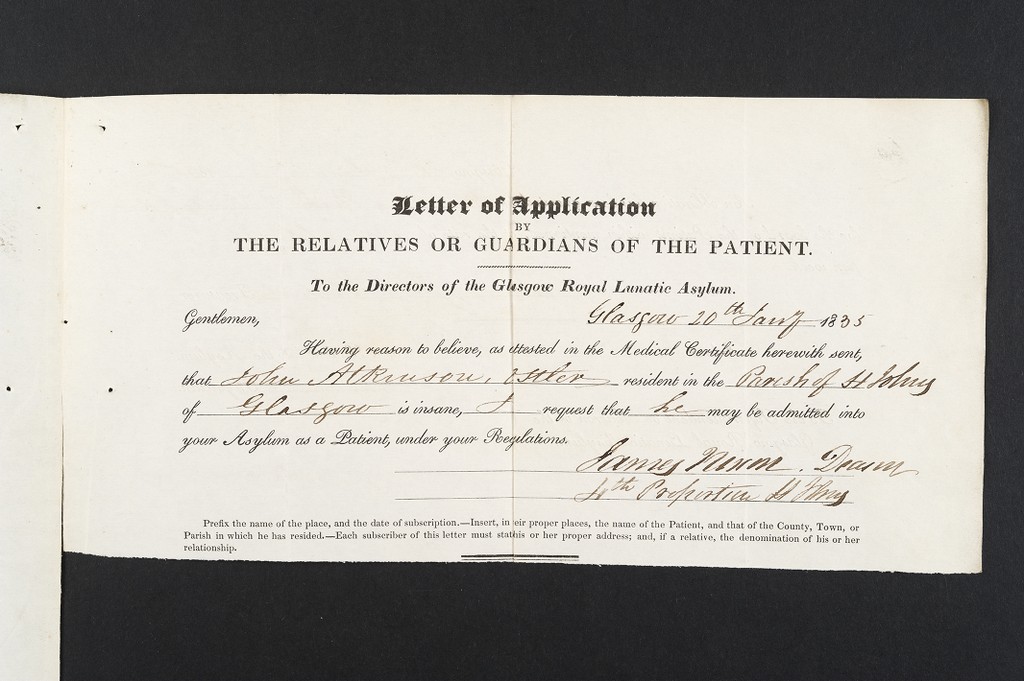 Letter of Application
BY
THE RELATIVES OR GUARDIANS OF THE PATIENT.
To the Directors of the Glasgow Royal Lunatic Asylum.
Gentlemen, Glasgow 20th Jany 1835
Having reason to believe, as attested in the Medical Certificate herewith sent,
that John Atkinson, Ostler resident in the Parish of St Johns
of Glasgow is insane, I request that he may be admitted into
your Asylum as a Patient, under your Regulations.
James Nixon, Deacon
4th Proportion St Johns
Prefix the name of the place, and the date of subscription.—Insert, in eir proper places, the name of the Patient, and that of the County, Town, or
Parish in which he has resided.—Each subscriber of this letter must stat is or her proper address; and, if a relative, the denomination of his or her
relationship.